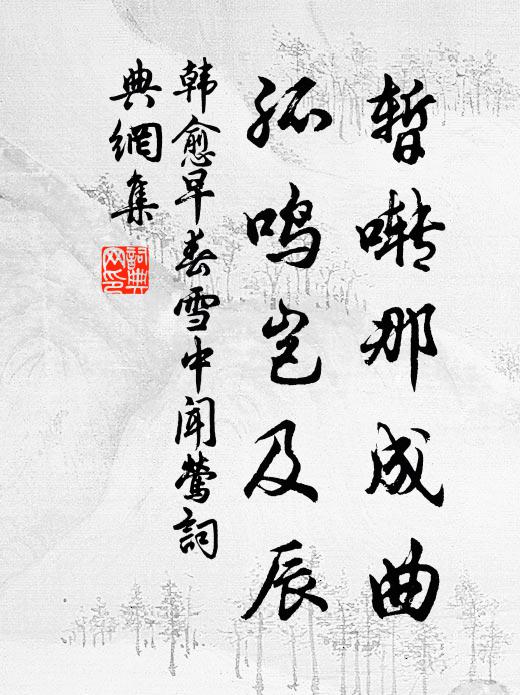 暂啭那成曲
孤鸣岂及辰
韩愈早春雪中闻莺词
典网集
词典网印